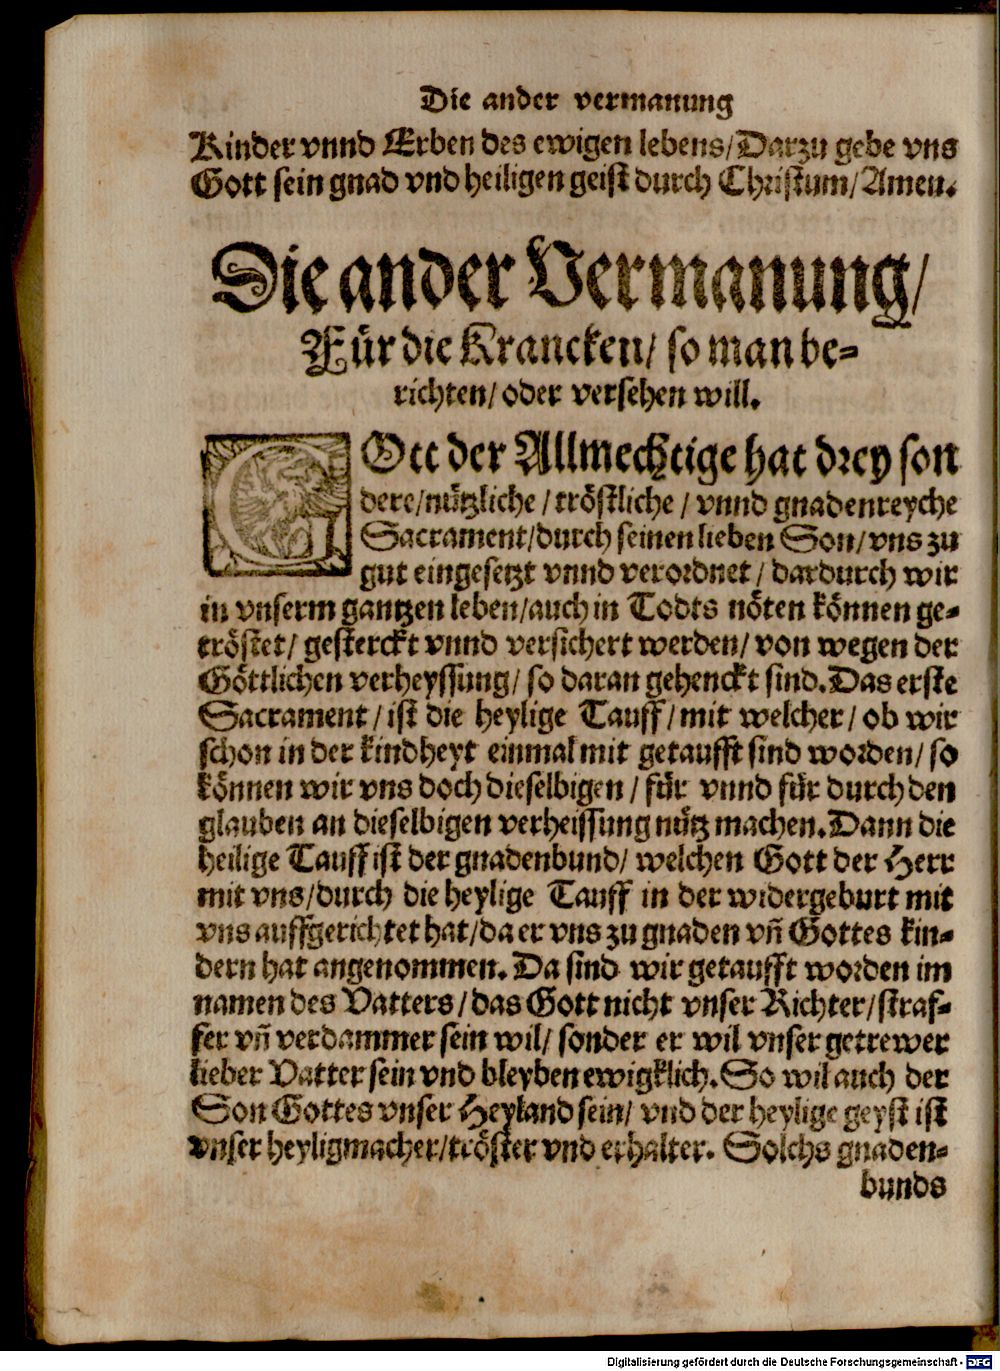 Die ander vermanung
Kinder vnnd Erben des ewigen lebens/Darzu gebe vns
Gott sein gnad vnd heiligen geist durch Christum/Amen.
Die ander Vermanung/
Für die Krancken/ so man be-
richten/ oder versehen will.
GOtt der Allmechtige hat drey son
dere/nützliche/tröstliche/vnnd gnadenreyche
Sacrament/durch seinen lieben Son/vns zu
gut eingesetzt vnnd verordnet/ dardurch wir
in vnserm gantzen leben/auch in Todts nöten können ge-
tröstet/ gesterckt vnnd versichert werden/ von wegen der
Göttlichen verheyssung/ so daran gehenckt sind. Das erste
Sacrament/ist die heylige Tauff/mit welcher/ ob wir
schon in der kindheyt einmal mit getaufft sind worden/ so
können wir vns doch dieselbigen/ für vnnd für durch den
glauben an dieselbigen verheissung nütz machen. Dann die
heilige Tauff ist der gnadenbund/ welchen Gott der Herr
mit vns/durch die heylige Tauff in der widergeburt mit
vns auffgerichtet hat/da er vns zu gnaden vñ Gottes kin-
dern hat angenommen. Da sind wir getaufft worden im
namen des Vatters/das Gott nicht vnser Richter/straf-
fer vñ verdammer sein wil/ sonder er wil vnser getrewer
lieber Vatter sein vnd bleyben ewigklich. So wil auch der
Son Gottes vnser Heyland sein/ vnd der heylige geyst ist
vnser heyligmacher/tröster vnd erhalter. Solchs gnaden-
bunds
Digitalisierung gefördert durch die Deutsche Forschungsgemeinschaft - DFG